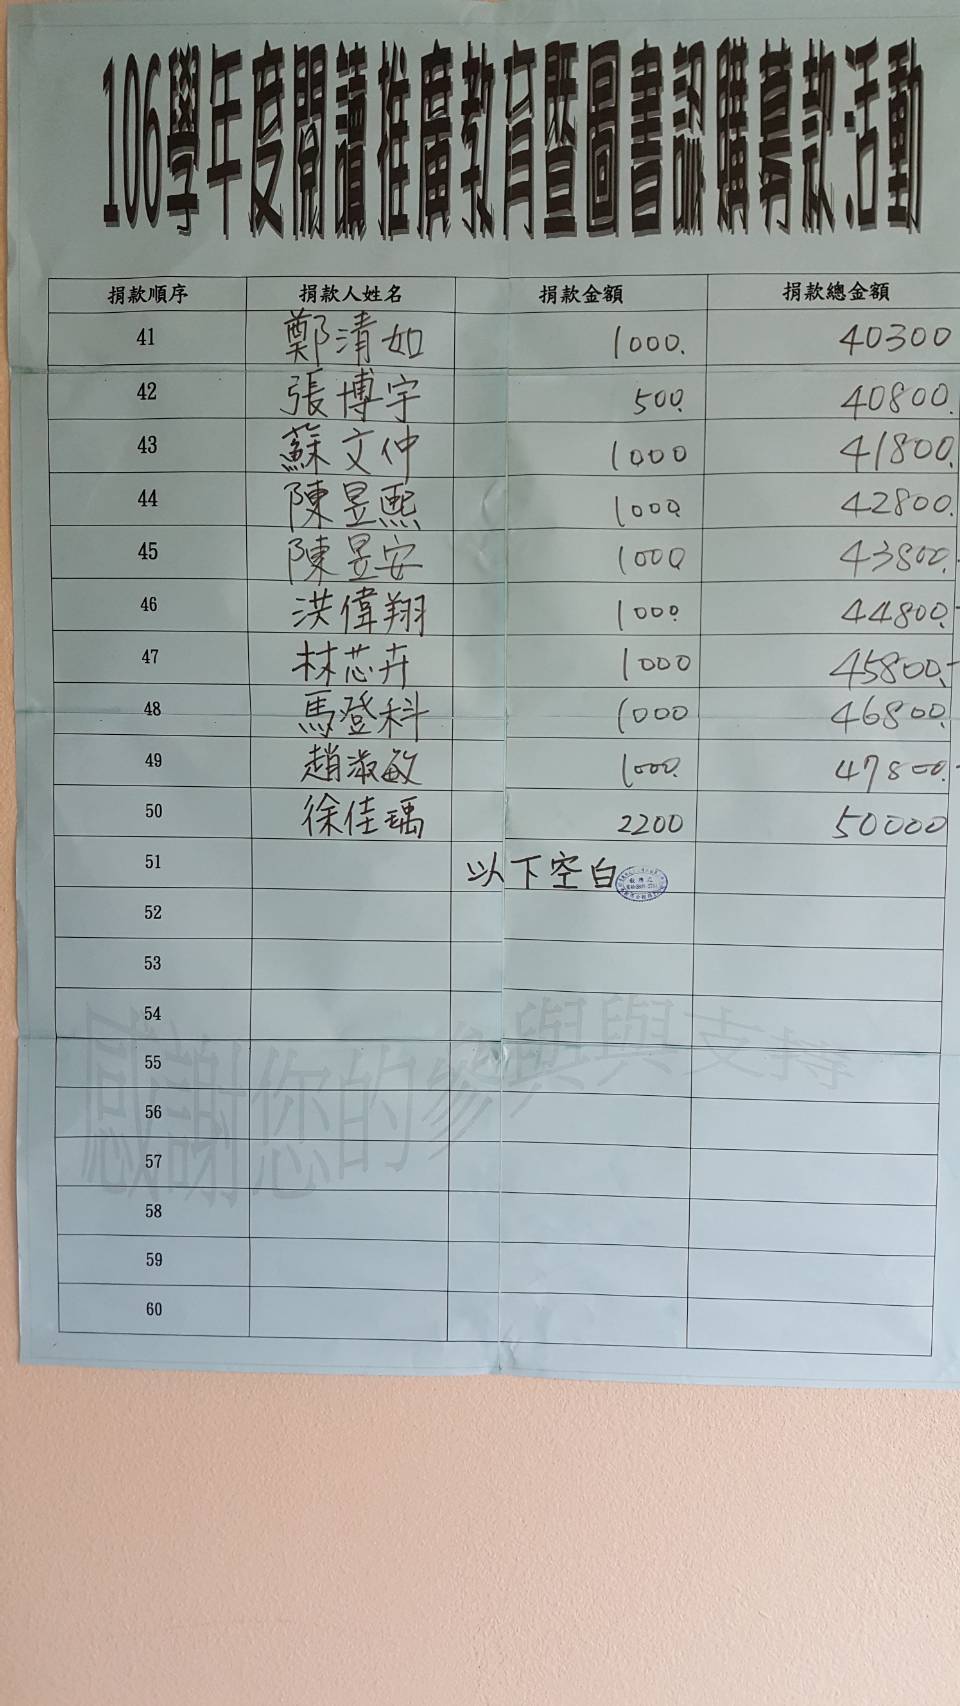 106學年度閱讀推廣教育暨圖書認購募款活動
捐款順序 捐款人姓名 捐款金額 捐款總金額
41 鄭清如 1000. 40300
42 張博宇 500. 40800.
43 蘇文仲 1000 41800.
44 陳昱熙 1000 42800.
45 陳昱安 1000 43800.-
46 洪偉翔 1000. 44800.-
47 林芯卉 1000 45800.-
48 馬登科 1000 46800.
49 趙淑敏 1000. 47800.-
50 徐佳瑀 2200 50000
51 以下空白
52
53
54
55
56
57
58
59
60
感謝您的參與與支持